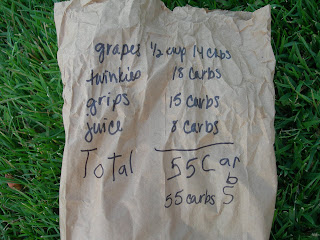 grapes 1/2 cup 14 carbs
twinkies 18 carbs
grips 15 carbs
juice 8 carbs
Total 55 Carbs
55 carbs